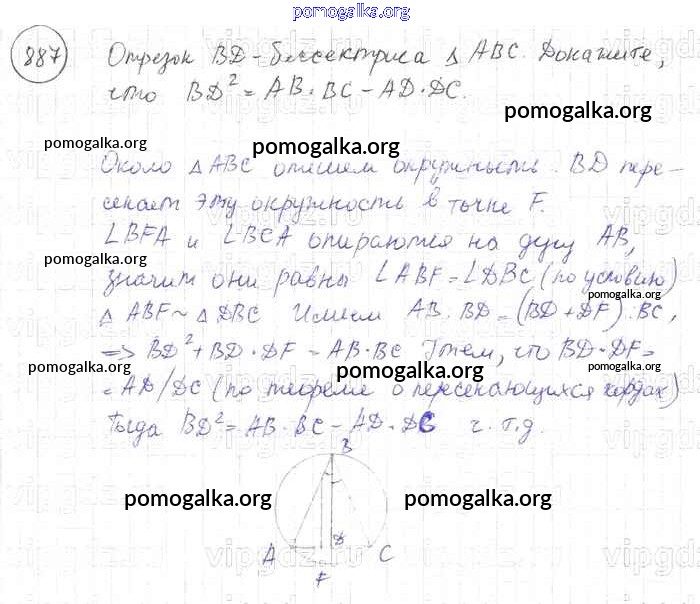 pomogalka.org
887 Отрезок BD - биссектриса △ ABC. Докажите,
что BD² = AB · BC - AD · DC.
pomogalka.org
pomogalka.org
pomogalka.org
Около △ ABC опишем окружность. BD пере-
секает эту окружность в точке F.
∠BFA и ∠BCA опираются на дугу AB,
pomogalka.org
значит они равны ∠ABF = ∠DBC (по условию)
pomogalka.org
△ ABF ~ △ DBC Имеем AB : BD = (BD + DF) : BC,
=> BD² + BD · DF = AB · BC Учтем, что BD · DF =
pomogalka.org
pomogalka.org
pomogalka.org
= AD / DC (по теореме о пересекающихся хордах)
Тогда BD² = AB · BC - AD · DC ч.т.д.
B
pomogalka.org
pomogalka.org
A D C
F
vipgdz.ru